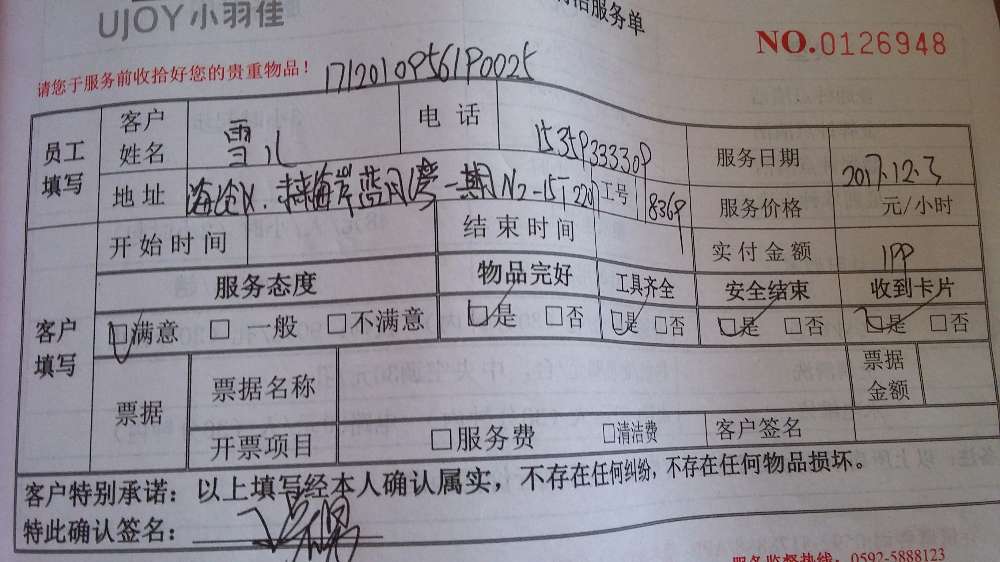 UJOY小羽佳
洁服务单
NO.0126948
请您于服务前收拾好您的贵重物品！
1712010956190025
员工填写 客户姓名 雪儿 电话 15359333309 服务日期 2017.12.3
地址 海沧区. 海岸蓝湾一期N2-15 工号 8369 服务价格 元/小时
开始时间 结束时间 实付金额 199
客户填写 服务态度 物品完好 工具齐全 安全结束 收到卡片
☑满意 □一般 □不满意 ☑是 □否 ☑是 □否 ☑是 □否 ☑是 □否
票据 票据名称 票据金额
开票项目 □服务费 □清洁费 客户签名
客户特别承诺：以上填写经本人确认属实，不存在任何纠纷，不存在任何物品损坏。
特此确认签名：
服务监督热线：0592-5888123